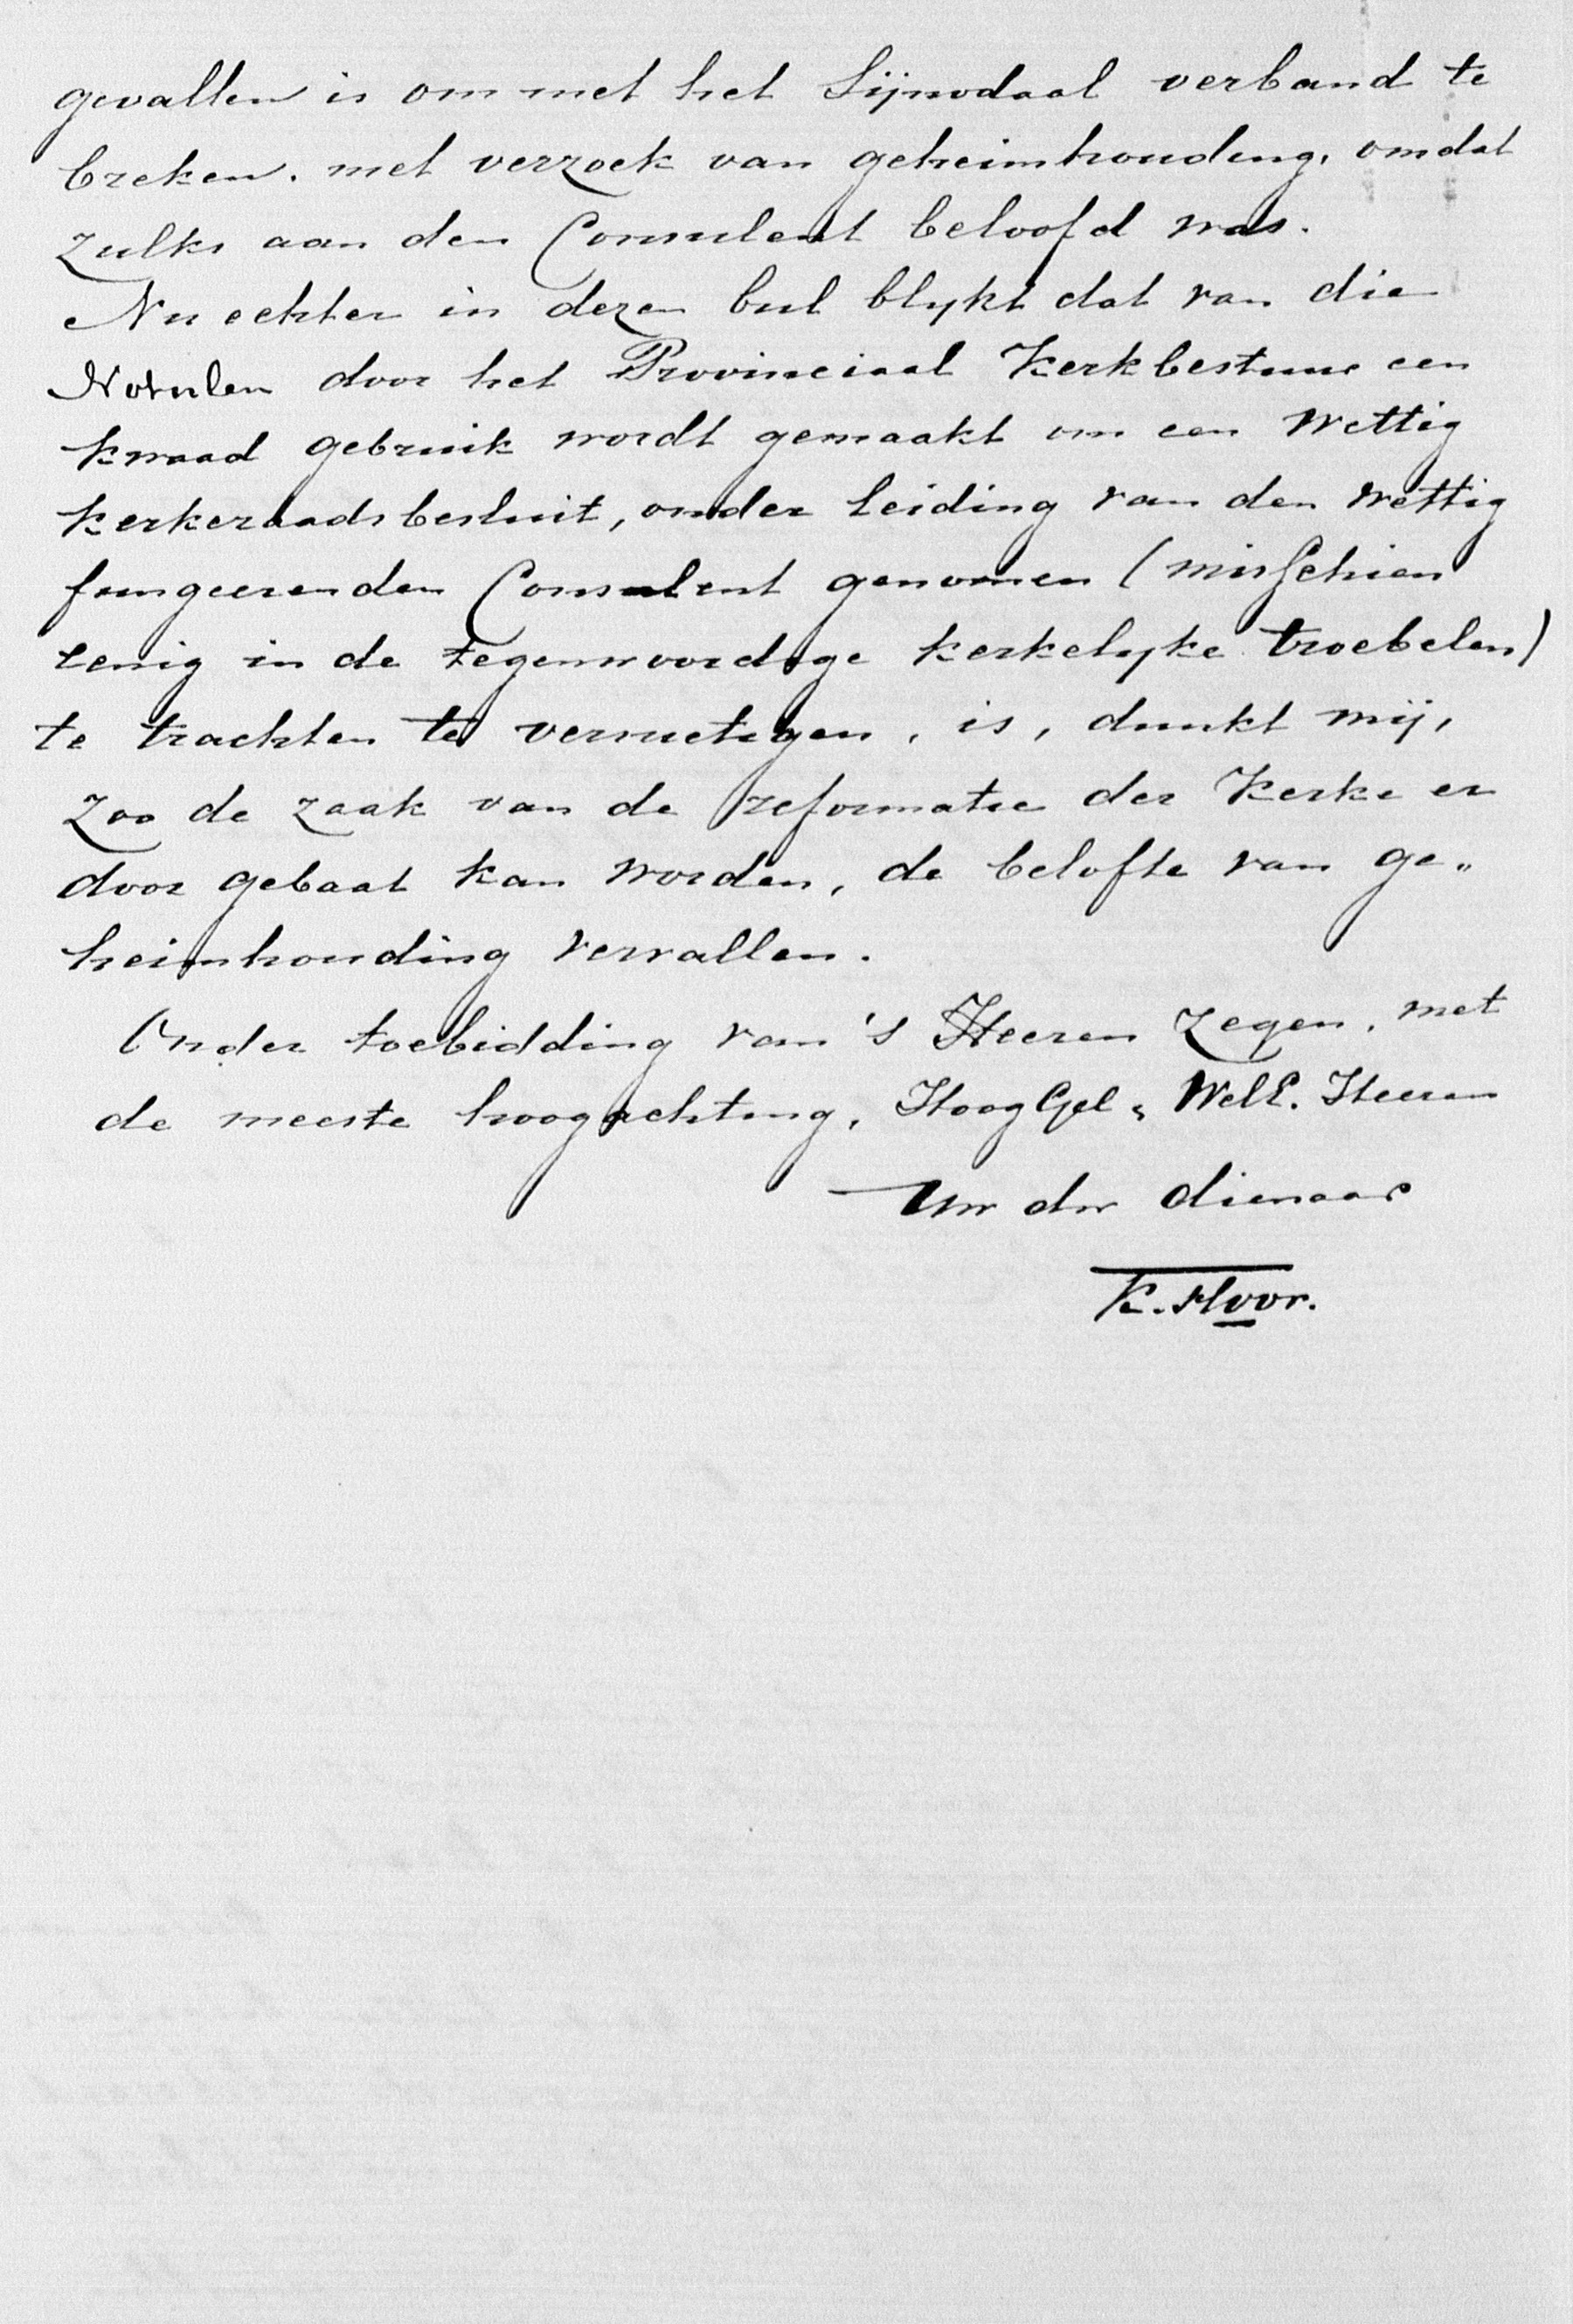 gevallen is om met het Sijnodaal verband te
breken. met verzoek van geheimhouding, omdat
zulks aan den Consulent beloofd was.
Nu echter in dezen bul blykt dat van die
Notulen door het Provinciaal Kerkbestuur een
kwaad gebruik wordt gemaakt om een Wettig
kerkeraadsbesluit, onder leiding van den Wettig
fungeerenden Consulent genomen (misschien
eenig in de tegenwoordige kerkelyke troebelen)
te trachten te vernietigen, is, dunkt mij,
zoo de zaak van de reformatie der Kerke er
door gebaat kan worden, de belofte van ge„
heimhouding vervallen.
Onder toebidding van 's Heeren Zegen, met
de meeste hoogachting, HoogGel. WelE. Heeren
Uw dw dienaar
K. Hoor.